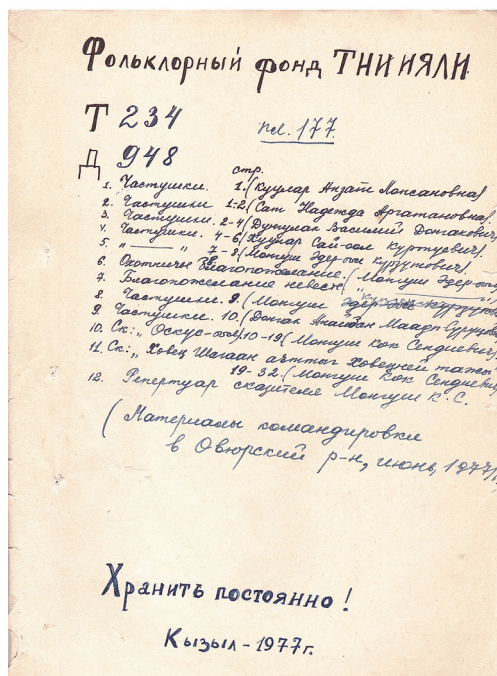 Фольклорный фонд ТНИИЯЛИ
Т 234
пл. 177.
Д 948
стр.
1. Частушки. 1. (Куулар Анзати
2. Частушки 1-2 (Сат Надежда Аргатановна).
3. Частушки. 2-4 (Василий Донгакович)
4. Частушки. 4-6 (Куулар Сай-оол
5. „ — „ 7-8 (Монгуш Эдер-оол
6. Охотничье Благопожелание. (Монгуш Эдер-оол
7. Благопожелание невесте (
8. Частушки. 9. (Монгуш
9. Частушки. 10. (Донгак Маадыр
10. Ск: „ Оскус-оол 10-19 (Монгуш Кок Сендиевич)
11. Ск: „ Ховец Шагаан аъттыг
19-32. (Монгуш Кок Сендиевич
12. Репертуар сказителя Монгуш К. С.
(Материалы командировки
в Овюрский р-н, июнь, 1977
Хранить постоянно!
Кызыл - 1977г.